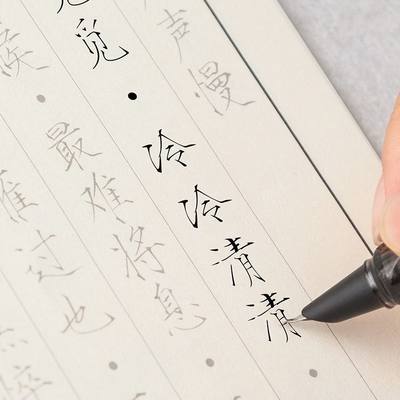 声慢
觅•冷冷清清
候•最难将息•
雁过也•